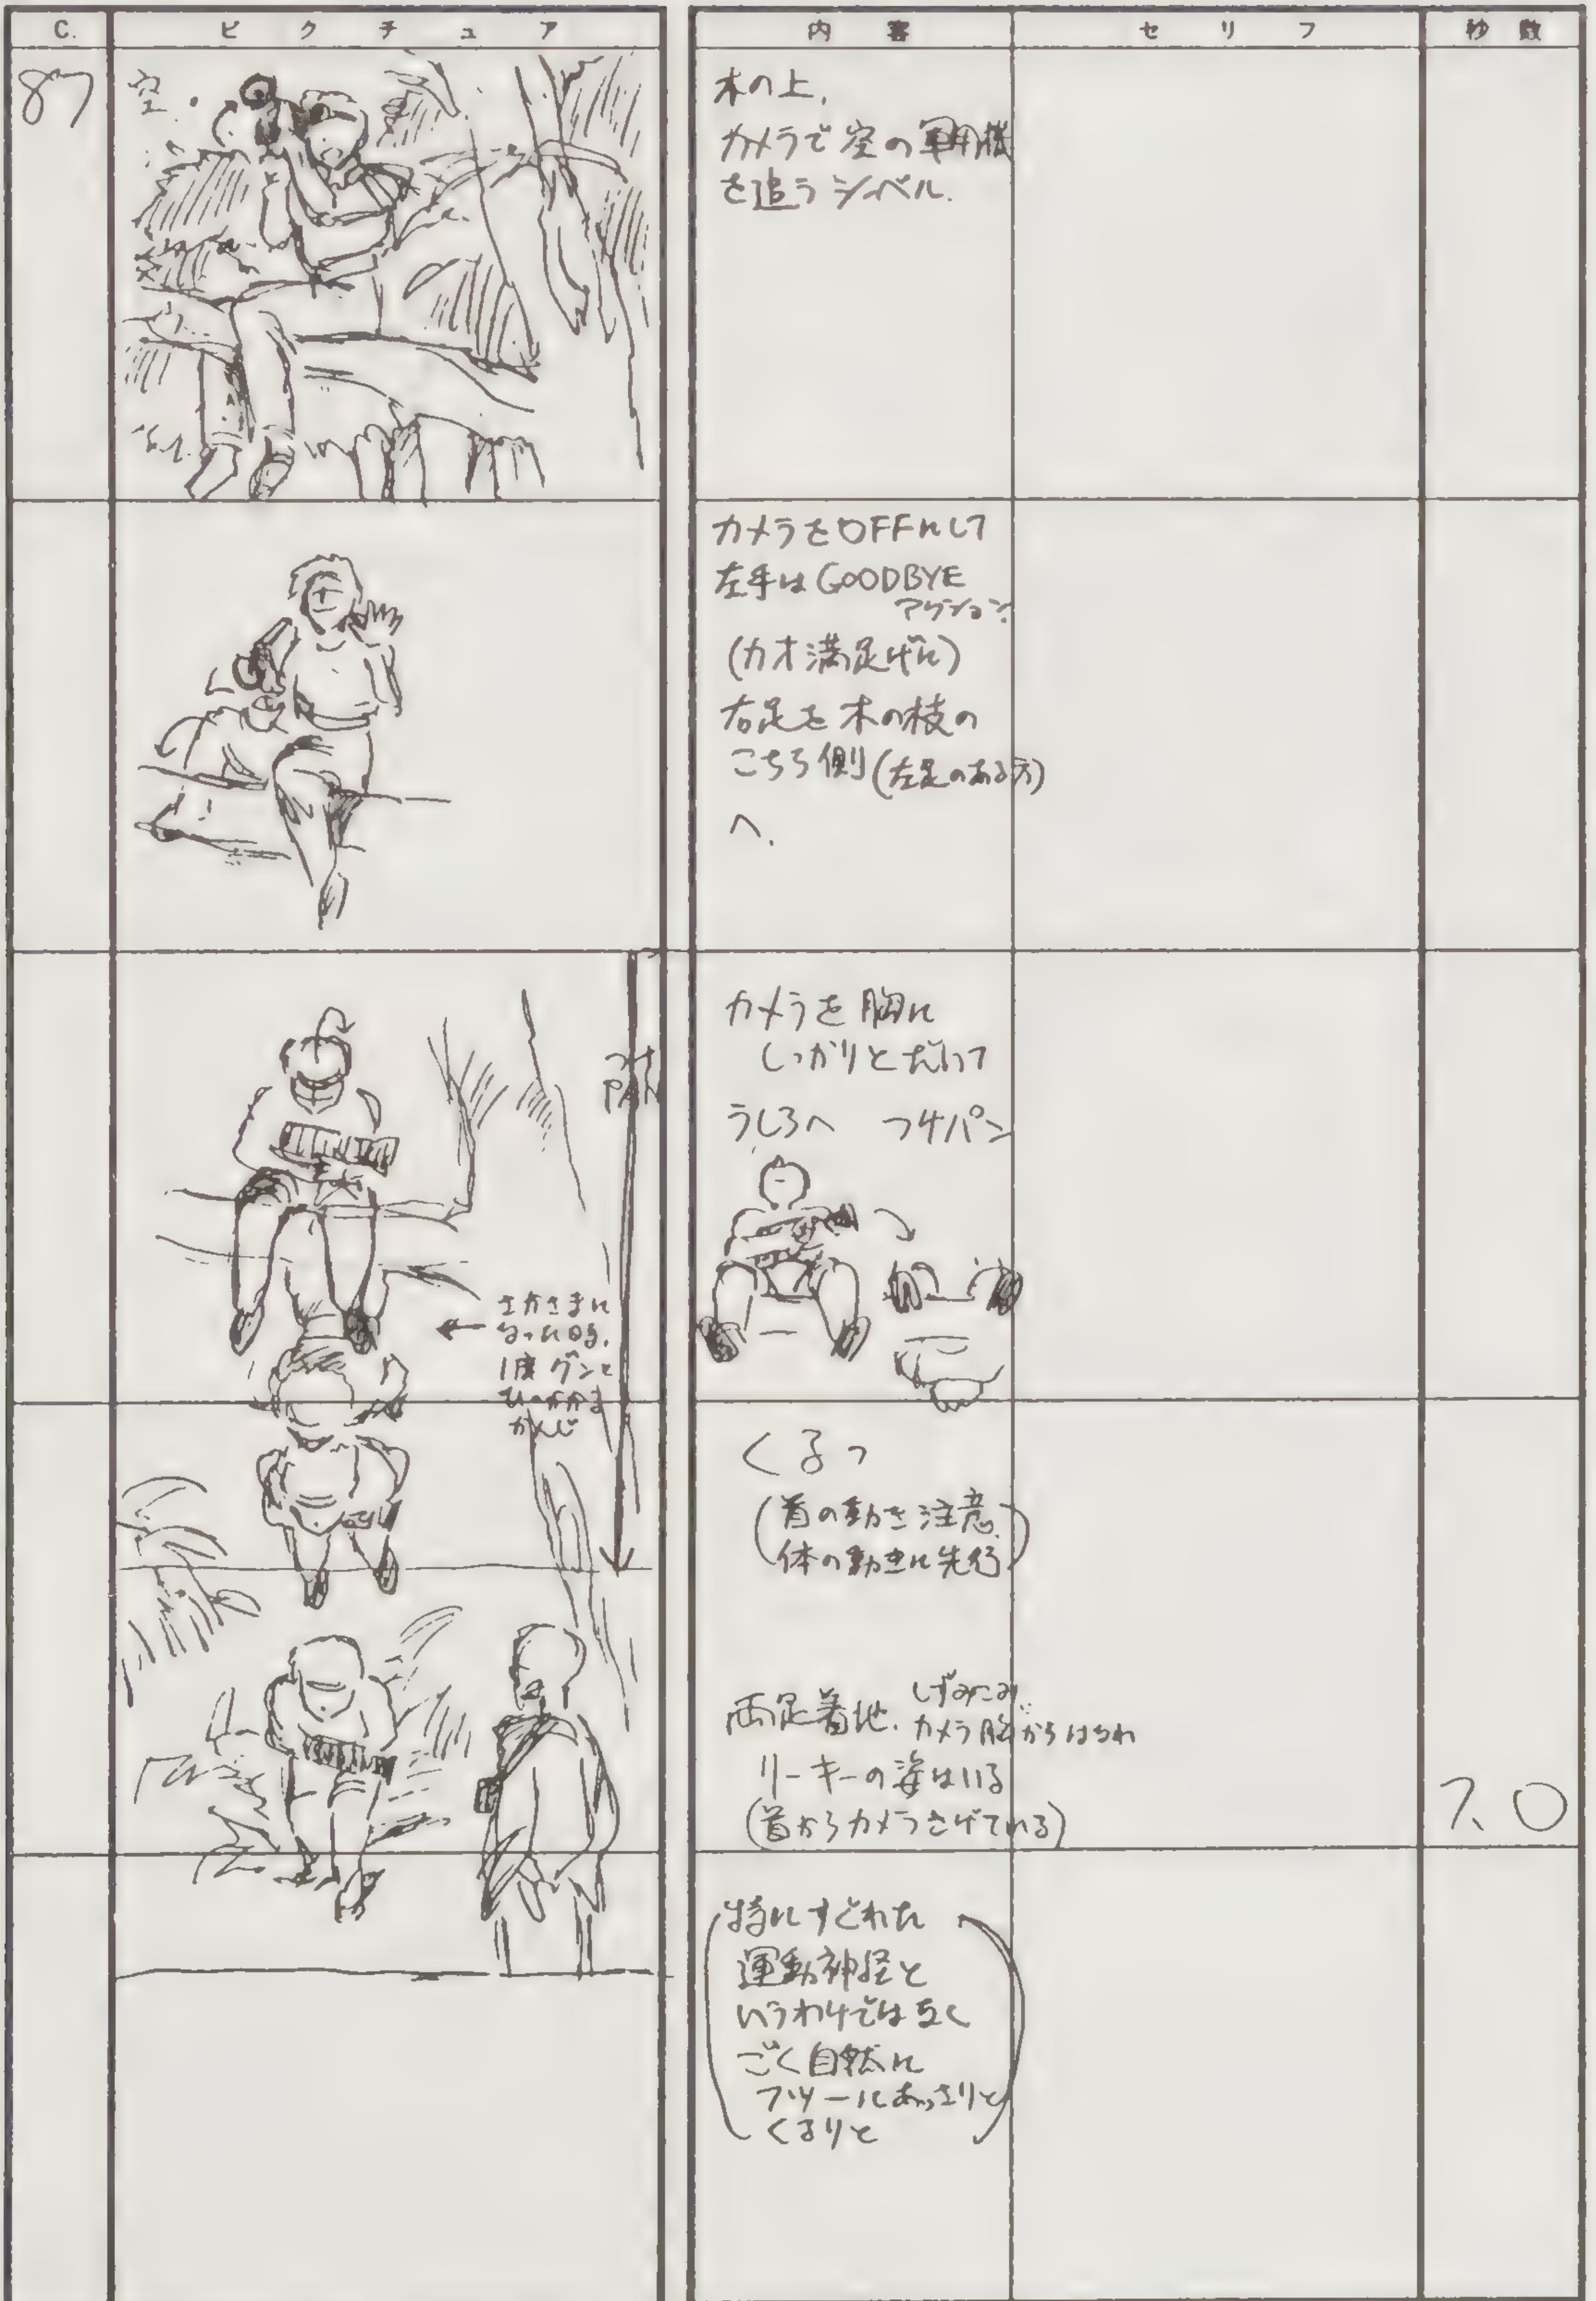 C.
ピクチュア
内容
セリフ
秒数
87
空
木の上、
カメラで空の軍用機
を追うシーベル.
カメラをOFFにして
左手はGOODBYE
アクション.
(カオ満足げに)
右足を木の枝の
こちら側(左足のある方)
へ.
つけ
PAN
カメラを胸に
しっかりとだいて
うしろへ つけパン
さかさまに
なった時、
1度グンと
ひっかかる
かんじ
くるっ
(首の動き注意.
体の動きに先行)
両足着地. しずみこみ.
カメラ胸からはなれ
リーキーの姿はいる
(首からカメラさげている)
7.0
(特にすぐれた
運動神経と
いうわけではなく
ごく自然に
フツーにあっさりと
くるりと)